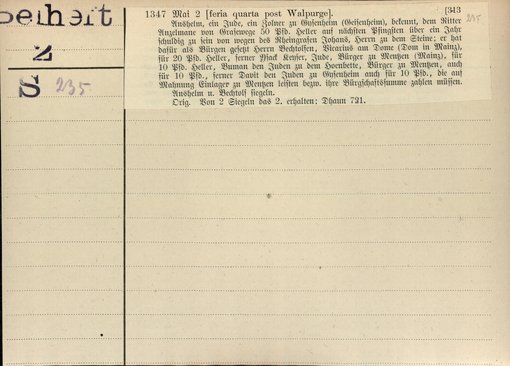 Beiheft
2
S 235
1347 Mai 2 [feria quarta post Walpurge]. [343
235
Anshelm, ein Jude, ein Zolner zu Gysenheim (Geisenheim), bekennt, dem Ritter
Anzelmane von Grasewege 50 Pfd. Heller auf nächsten Pfingsten über ein Jahr
schuldig zu sein von wegen des Rheingrafen Johans, Herrn zu dem Steine; er hat
dafür als Bürgen gesetzt Herrn Bechtolfen, Vicarius am Dome (Dom in Mainz),
für 20 Pfd. Heller, ferner Ysack Keyser, Jude, Bürger zu Mentzen (Mainz), für
10 Pfd. Heller, Human den Juden zu dem Hornbette, Bürger zu Mentzen, auch
für 10 Pfd., ferner Davit den Juden zu Gysenheim auch für 10 Pfd., die auf
Mahnung Einlager zu Mentzen leisten bezw. ihre Bürgschaftssumme zahlen müssen.
Anshelm u. Bechtolf siegeln.
Orig. Von 2 Siegeln das 2. erhalten: Dhaun 721.